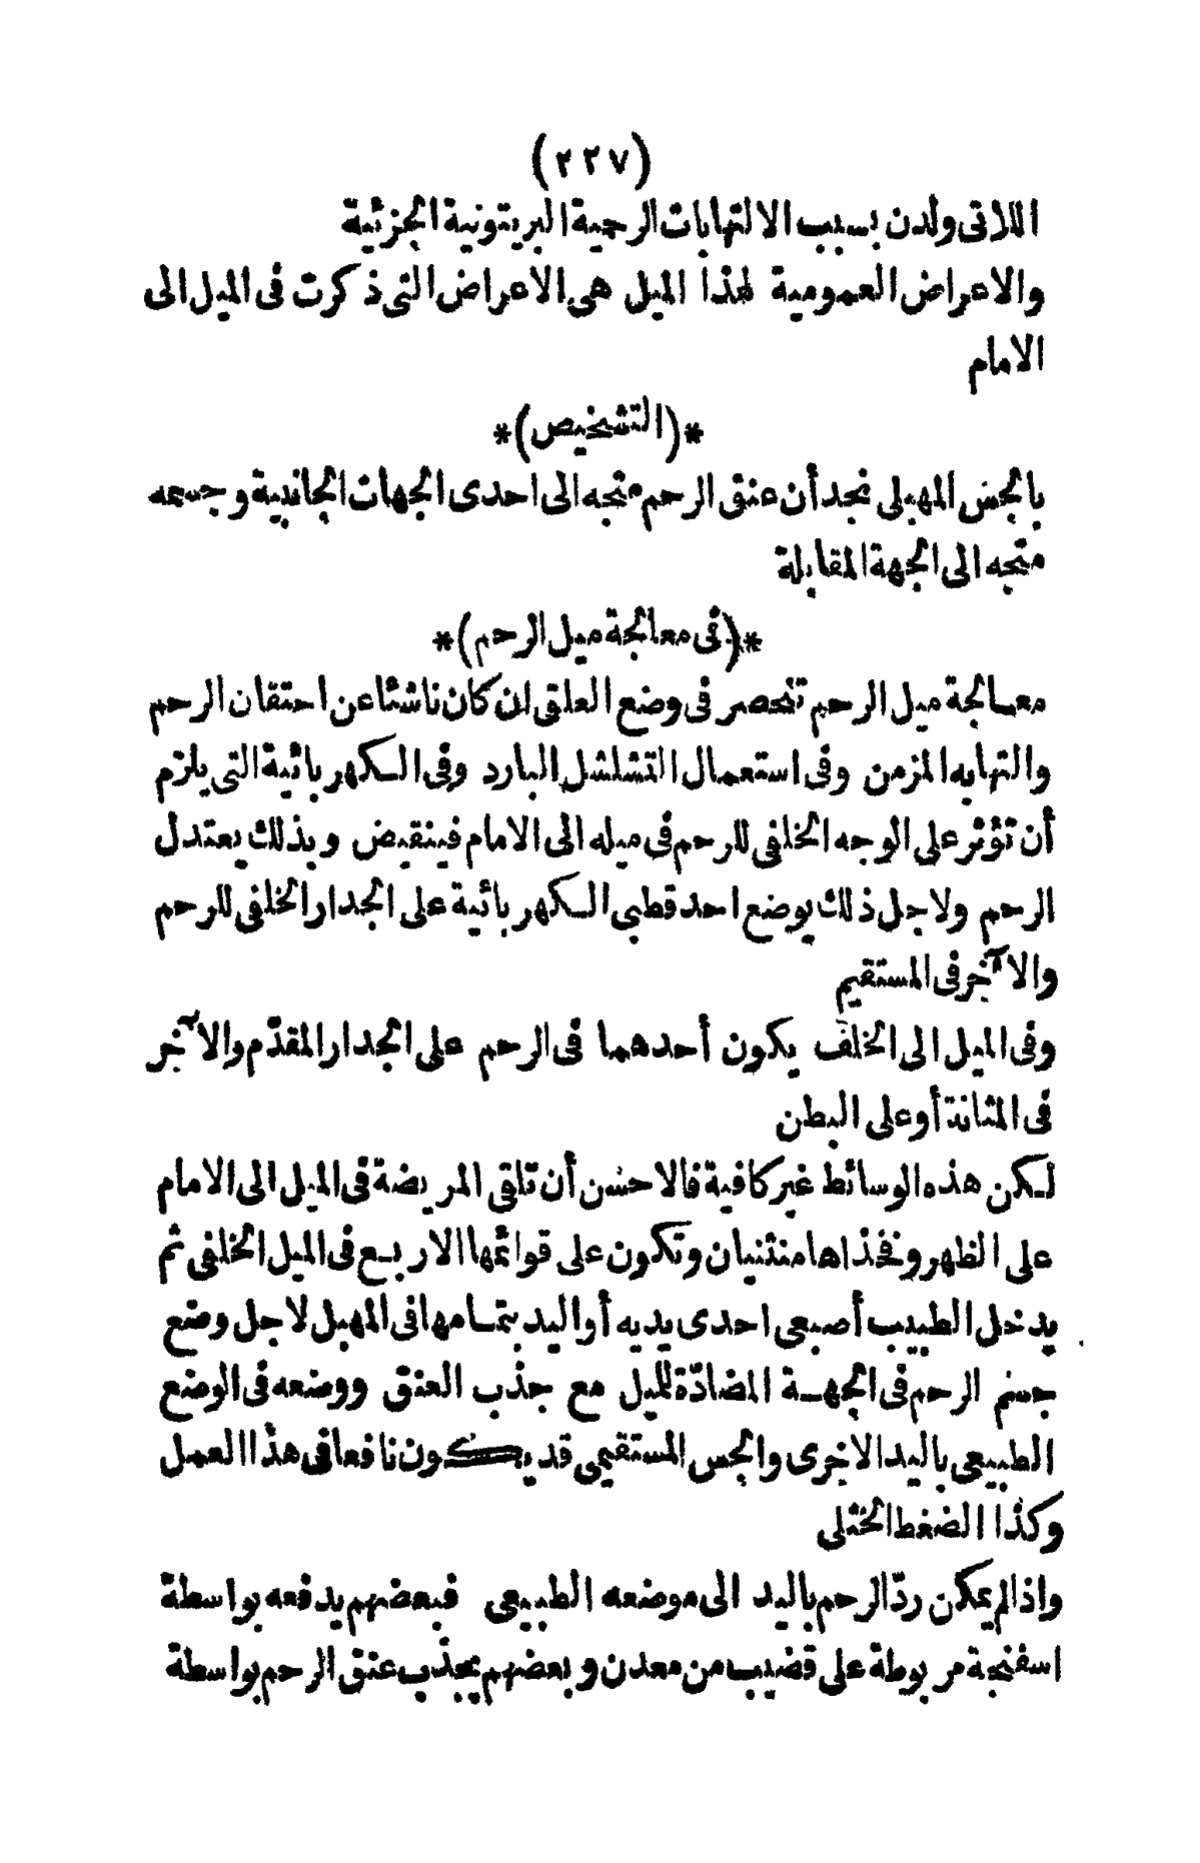 (٢٢٧)
اللاتى ولدن بسبب الالتهابات الرحمية البريتونية الجزئية
والاعراض العمومية لهذا الميل هى الاعراض التى ذكرت فى الميل الى
الامام
*(التشخيص)*
بالجس المهبلى نجد أن عنق الرحم متجه الى احدى الجهات الجانبية وجسمه
متجه الى الجهة المقابلة
*(فى معالجة ميل الرحم)*
معالجة ميل الرحم تنحصر فى وضع العلق ان كان ناشئا عن احتقان الرحم
والتهابه المزمن وفى استعمال التشلشل البارد وفى الكهربائية التى يلزم
أن تؤثر على الوجه الخلفى للرحم فى ميله الى الامام فينقبض وبذلك يعتدل
الرحم ولاجل ذلك يوضع احد قطبى الكهربائية على الجدار الخلفى للرحم
والآخر فى المستقيم
وفى الميل الى الخلف يكون أحدهما فى الرحم على الجدار المقدّم والآخر
فى المثانة أو على البطن
لكن هذه الوسائط غير كافية فالاحسن أن تلقى المريضة فى الميل الى الامام
على الظهر وفخذاها منثنيان وتكون على قوائمها الاربع فى الميل الخلفى ثم
يدخل الطبيب أصبعى احدى يديه أو اليد بتمامها فى المهبل لاجل وضع
جسم الرحم فى الجهة المضادّة للميل مع جذب العنق ووضعه فى الوضع
الطبيعى باليد الاخرى والجس المستقيمى قد يكون نافعا فى هذا العمل
وكذا الضغط الخثلى
واذا لم يمكن ردّ الرحم باليد الى موضعه الطبيعى فبعضهم يدفعه بواسطة
اسفنجة مربوطة على قضيب من معدن وبعضهم يجذب عنق الرحم بواسطة